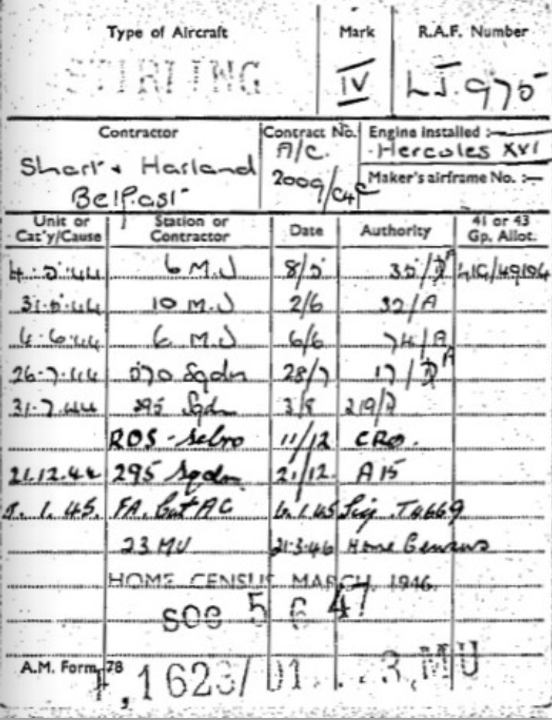 Type of Aircraft Mark R.A.F. Number
STIRLING IV LJ.975
Contractor Contract No. Engine installed :—
Short & Harland A/C. Hercules XVI
Belfast 2009/C4C Maker's airframe No. :—
Unit or Cat'y/Cause Station or Contractor Date Authority 41 or 43 Gp. Allot.
6 M.U 8/5 35/
31.5.44 10 M.U 2/6 32/A
4.6.44 6 M.U 6/6 74/A
26.7.44 570 Sqdn 28/7 17/
31.7.44 295 Sqdn 3/8 219/
ROS - Sebro 11/12 CRO.
21.12.44 295 Sqdn 21/12 A 15
1.45. FA. Cat AC 6.1.45 Sig. T4669
23 MU 21.3.46 Home Census
HOME CENSUS MARCH, 1946.
SOC 5 6 47
A.M. Form 78
1623/01 3, MU